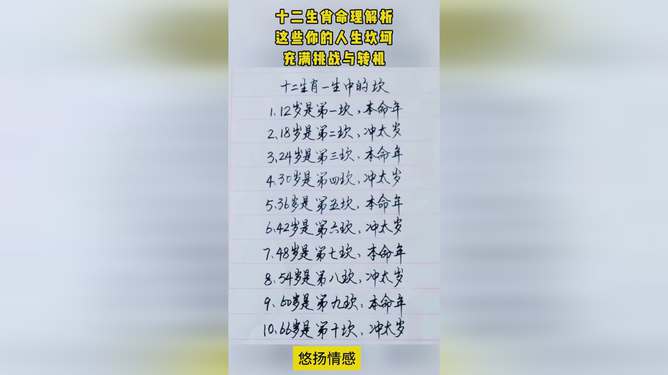 十二生肖命理解析
这些你的人生坎坷
充满挑战与转机
十二生肖一生中的坎
1.12岁是第一坎,本命年
2.18岁是第二坎,冲太岁
3.24岁是第三坎,本命年
4.30岁是第四坎,冲太岁
5.36岁是第五坎,本命年
6.42岁是第六坎,冲太岁
7.48岁是第七坎,本命年
8.54岁是第八坎,冲太岁
9.60岁是第九坎,本命年
10.66岁是第十坎,冲太岁
悠扬情感